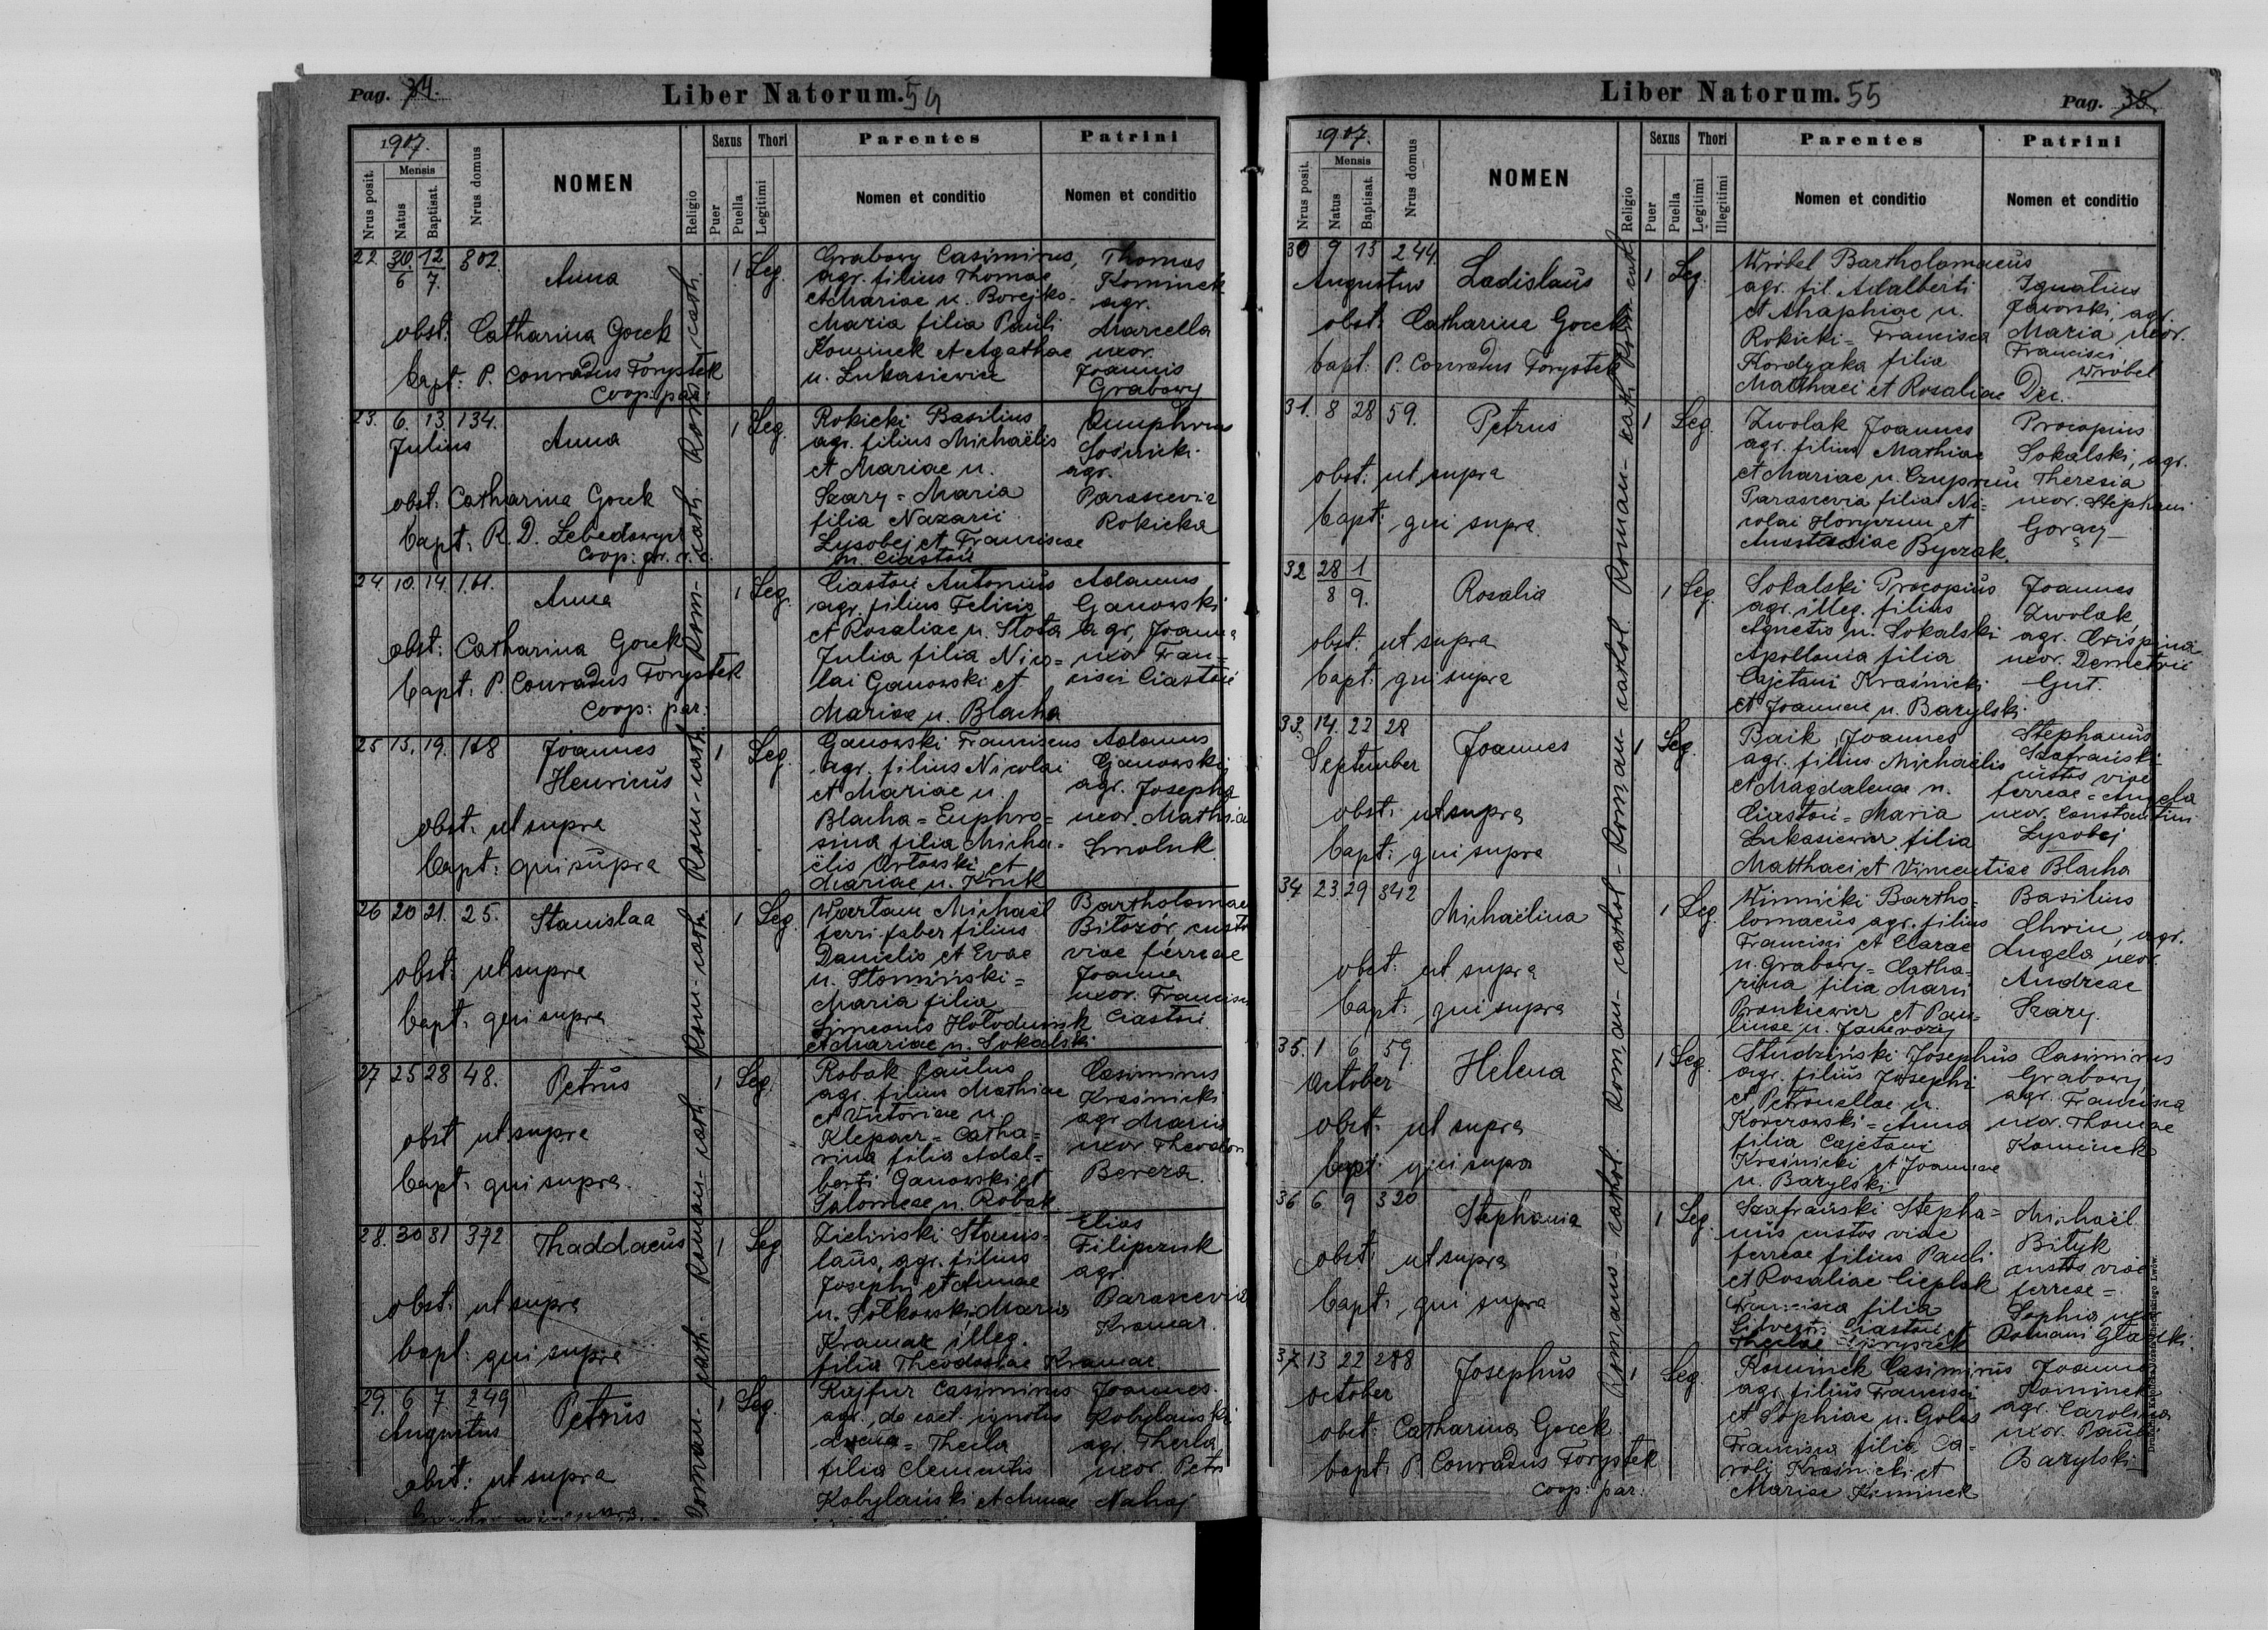 Pag. 34.
Liber Natorum. 54
1907.
Nrus posit.
Mensis
Natus
Baptisat.
Nrus domus
NOMEN
Religio
Sexus
Puer
Puella
Thori
Legitimi
Parentes
Nomen et conditio
Patrini
Nomen et conditio
22. 30/6 12/7. 302. Anna 1 Leg.
obst. Catharina Gorek
bapt: P. Conradus Forystek
Coop: par:
Grabowy Casimirus,
agr. filius Thomae
et Mariae n. Borejko-
Maria filia Pauli
Kominek et Agathae
n. Lukasiewicz
Thomas
Kominek
agr.
Marcella
uxor.
Joannis
Grabowy
23. 6. 13. 134. Anna 1 Leg.
Julius
obst. Catharina Gorek
bapt. R. D. Lebedowycz
Coop: gr. r. c.
Rokicki Basilius
agr. filius Michaëlis
et Mariae n.
Szary = Maria
filia Nazarii
Lysobej et Franciscae
n. Ciastoń
Onuphrius
Sośnicki
agr.
Parascevia
Rokicka
24. 10. 14. 161. Anna 1 Leg.
obst: Catharina Gorek
bapt: P. Conradus Forystek
Coop: par:
Ciastoń Antonius
agr. filius Felicis
et Rosaliae n. Slota
Julia filia Nico=
lai Ganowski et
Mariae n. Blacha
Adamus
Ganowski
agr, Joanna
uxor Fran=
cisci Ciastoń
25 15. 19. 168 Joannes 1 Leg.
Henricus
obst. ut supra
bapt. qui supra
Ganowski Franciscus
agr. filius Nicolai
et Mariae n.
Blacha = Euphro=
sina filia Micha=
ëlis Orlowski et
Mariae n. Kruk
Adamus
Ganowski
agr. Josepha
uxor. Mathiae
Smoluk
26 20 21. 25. Stanislaa 1 Leg.
obst. ut supra
bapt. qui supra
Wartam Michaël
ferri faber filius
Danielis et Evae
n. Slomiński =
Maria filia
Simeonis Holoduniuk
et Mariae n. Sokalski
Bartholomaeus
Bilozór custos
viae ferreae
Joanna
uxor. Francisci
Ciastoń.
27 25 28 48. Petrus 1 Leg.
obst ut supra
bapt. qui supra.
Robak Paulus
agr. filius Mathiae
et Victoriae n.
Klepacz = Catha=
rina filia Adal=
berti Ganowski et
Salomeae n. Robak
Casimirus
Kraśnicki
agr Maria
uxor Theodori
Bereza.
28. 30 31 372 Thaddaeus 1 Leg
obst. ut supra
bapt. qui supra
Zieliński Stanis=
laus, agr. filius
Josephi et Annae
n. Solkowski Maria
Kramar illeg.
filia Theodosiae Kramar.
Elias
Filipczuk
agr.
Parascevia
Kramar.
29. 6 7 249 Petrus 1 Leg.
Augustus
obst: ut supra
Rajfur Casimirus
agr. de caet. ignotis
Thecla
filia Clementis
Kobylański et Annae
Joannes
Kobylański
agr. Thecla
uxor. Petri
Nahaj
Roman-cath. Roman-cath. Rom-cath. Rom-cath. Rom-cath. Rom-cath.
Liber Natorum. 55
Pag. 35.
1907.
Nrus posit.
Mensis
Natus
Baptisat.
Nrus domus
NOMEN
Religio
Sexus
Puer
Puella
Thori
Legitimi
Illegitimi
Parentes
Nomen et conditio
Patrini
Nomen et conditio
30 9 15 244. Ladislaus 1 Leg.
Augustus
obst: Catharina Gorek
bapt: P. Conradus Forystek
Wróbel Bartholomaeus
agr. fil. Adalberti
et Ahaphiae n.
Rokicki = Francisca
Kordyaka filia
Matthaei et Rosaliae Dec.
Ignatius
Jaworski, agr.
Maria uxor.
Francisci
Wróbel
31. 8 28 59. Petrus 1 Leg.
obst: ut supra
bapt: qui supra.
Zwolak Joannes
agr. filius Mathiae
et Mariae n. Czupren
Parascevia filia Ni=
colai Horyczun et
Anastasiae Byczak
Procopius
Sokalski, agr.
Theresia
uxor. Stephani
Goracy
32 28/8 1/9. Rosalia 1 Leg.
obst. ut supra
bapt. qui supra
Sokalski Procopius
agr. illeg. filius
Agnetis n. Sokalski
Apollonia filia
Cajetani Kraśnicki
et Joannae n. Barylski.
Joannes
Zwolak,
agr. Crispina
uxor. Demetrii
Gut.
33. 14. 22 28 Joannes 1 Leg.
September
obst. ut supra
bapt. qui supra
Baik Joannes
agr. filius Michaëlis
et Magdalenae n.
Ciastoń = Maria
Lukasiewicz filia
Matthaei et Vincentiae Blacha
Stephanus
Szafrański
custos viae
ferreae = Angela
uxor. Constantini
Lysobej
34 23 29 342 Michaëlina 1 Leg.
obst. ut supra
bapt: qui supra
Winnicki Bartho=
lomaeus agr. filius
Francisci et Clarae
n. Grabowy = Catha=
rina filia Marci
Pronkiewicz et Pau=
linae n. Janewozy
Basilius
Chwin, agr.
Angela uxor
Andreae
Szary.
35. 1 6 59. Helena 1 Leg.
October
obst. ut supra
bapt. qui supra
Studziński Josephus
agr. filius Josephi
et Petronellae n.
Korczowski = Anna
filia Cajetani
Kraśnicki et Joannae
n. Barylski
Casimirus
Grabowy,
agr. Francisca
uxor. Thomae
Kominek
36 6 9 320 Stephania 1 Leg.
obst ut supra
bapt. qui supra
Szafrański Stepha=
nus custos viae
ferreae filius Pauli
et Rosaliae Cieplak
Francisca filia
Silvestri Ciastoń et
Theclae
Michaël
Bityk
custos viae
ferreae =
Sophia uxor
Romani
37. 13 22 288 Josephus 1 Leg.
October
obst: Catharina Gorek
bapt: P Conradus Forystek
Coop: par:
Kominek Casimirus
agr. filius Francisci
et Sophiae n. Golas
Francisca filia Ca=
roli Kraśnicki et
Mariae Kominek
Joannes
Kominek
agr. Carolina
uxor. Pauli
Barylski
Roman-cathol. Roman-cathol. Roman-cathol. Roman-cathol. Roman-cath. Rom-cath.